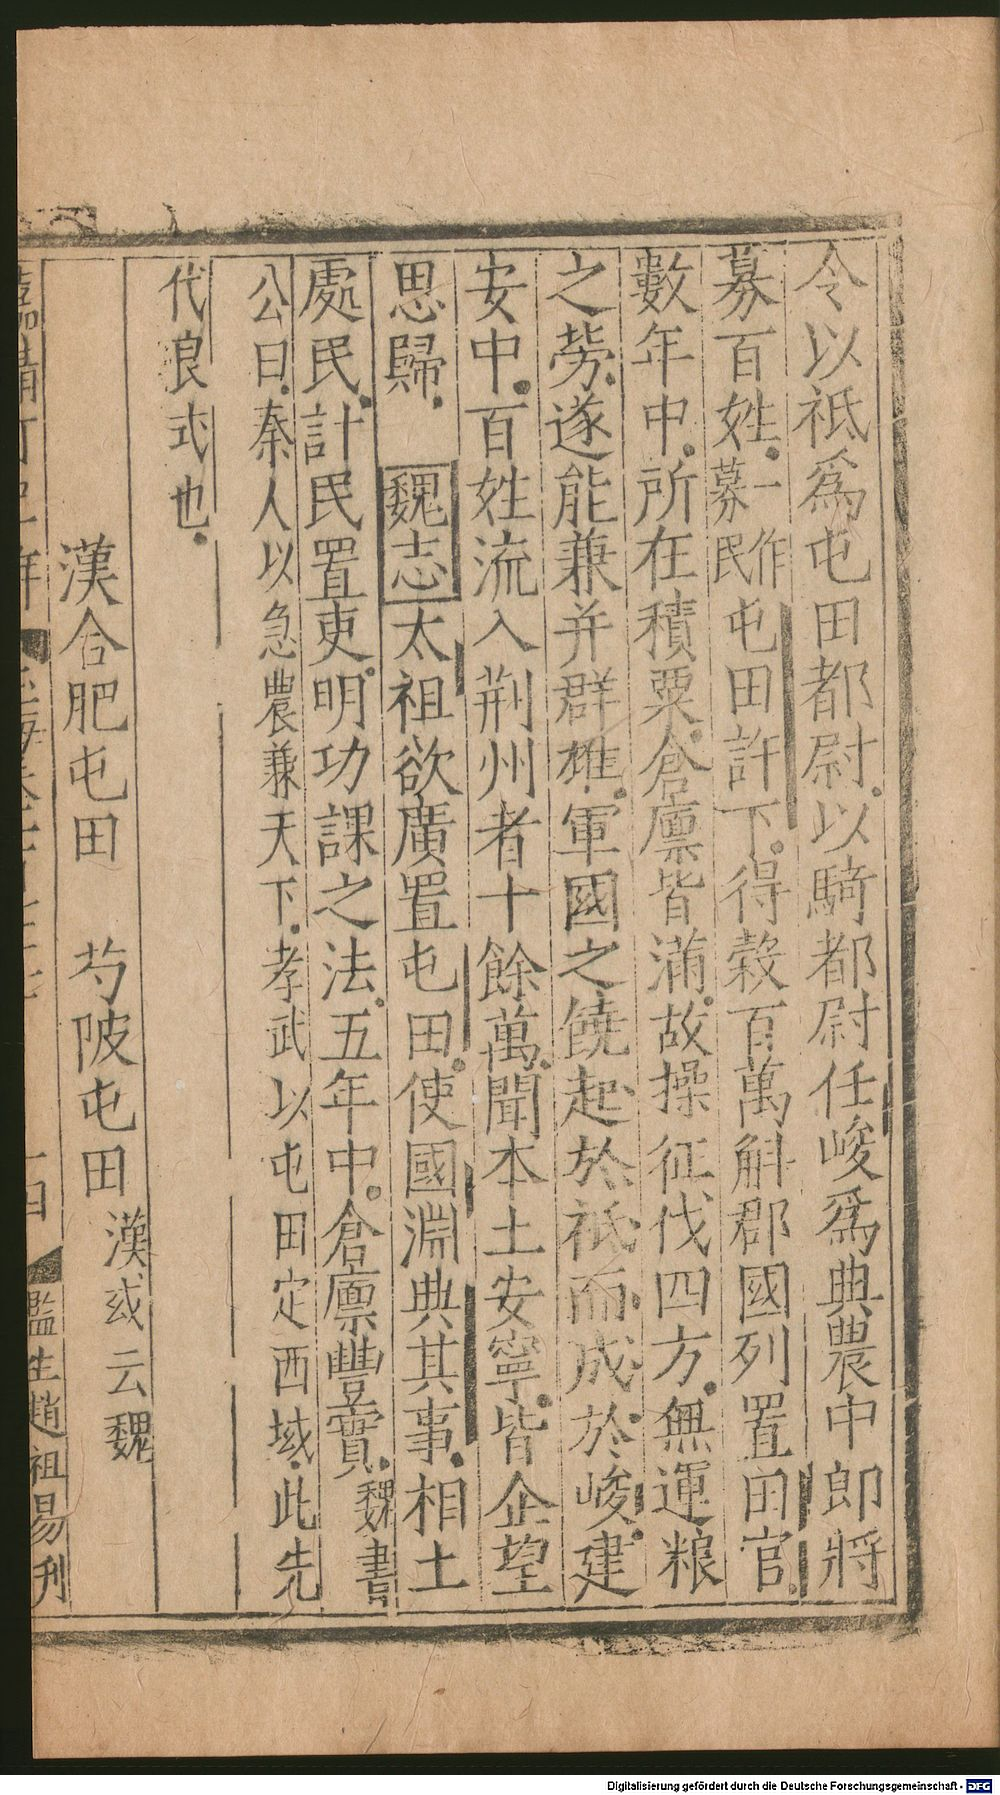 令以祗爲屯田都尉以騎都尉任峻爲典農中郎將
募百姓募一作民屯田許下得穀百萬斛郡國列置田官
數年中所在積粟倉廪皆滿故操征伐四方無運粮
之勞遂能兼并群雄軍國之饒起於祗而成於峻建
安中百姓流入荆州者十餘萬聞本土安寧皆企望
思歸 魏志太祖欲廣置屯田使國淵典其事相土
處民計民置吏明功課之法五年中倉廪豐實魏書
公曰秦人以急農兼天下孝武以屯田定西域此先
代良式也
漢合肥屯田 芍陂屯田漢或云魏
監生趙祖易刊
Digitalisierung gefördert durch die Deutsche Forschungsgemeinschaft - DFG